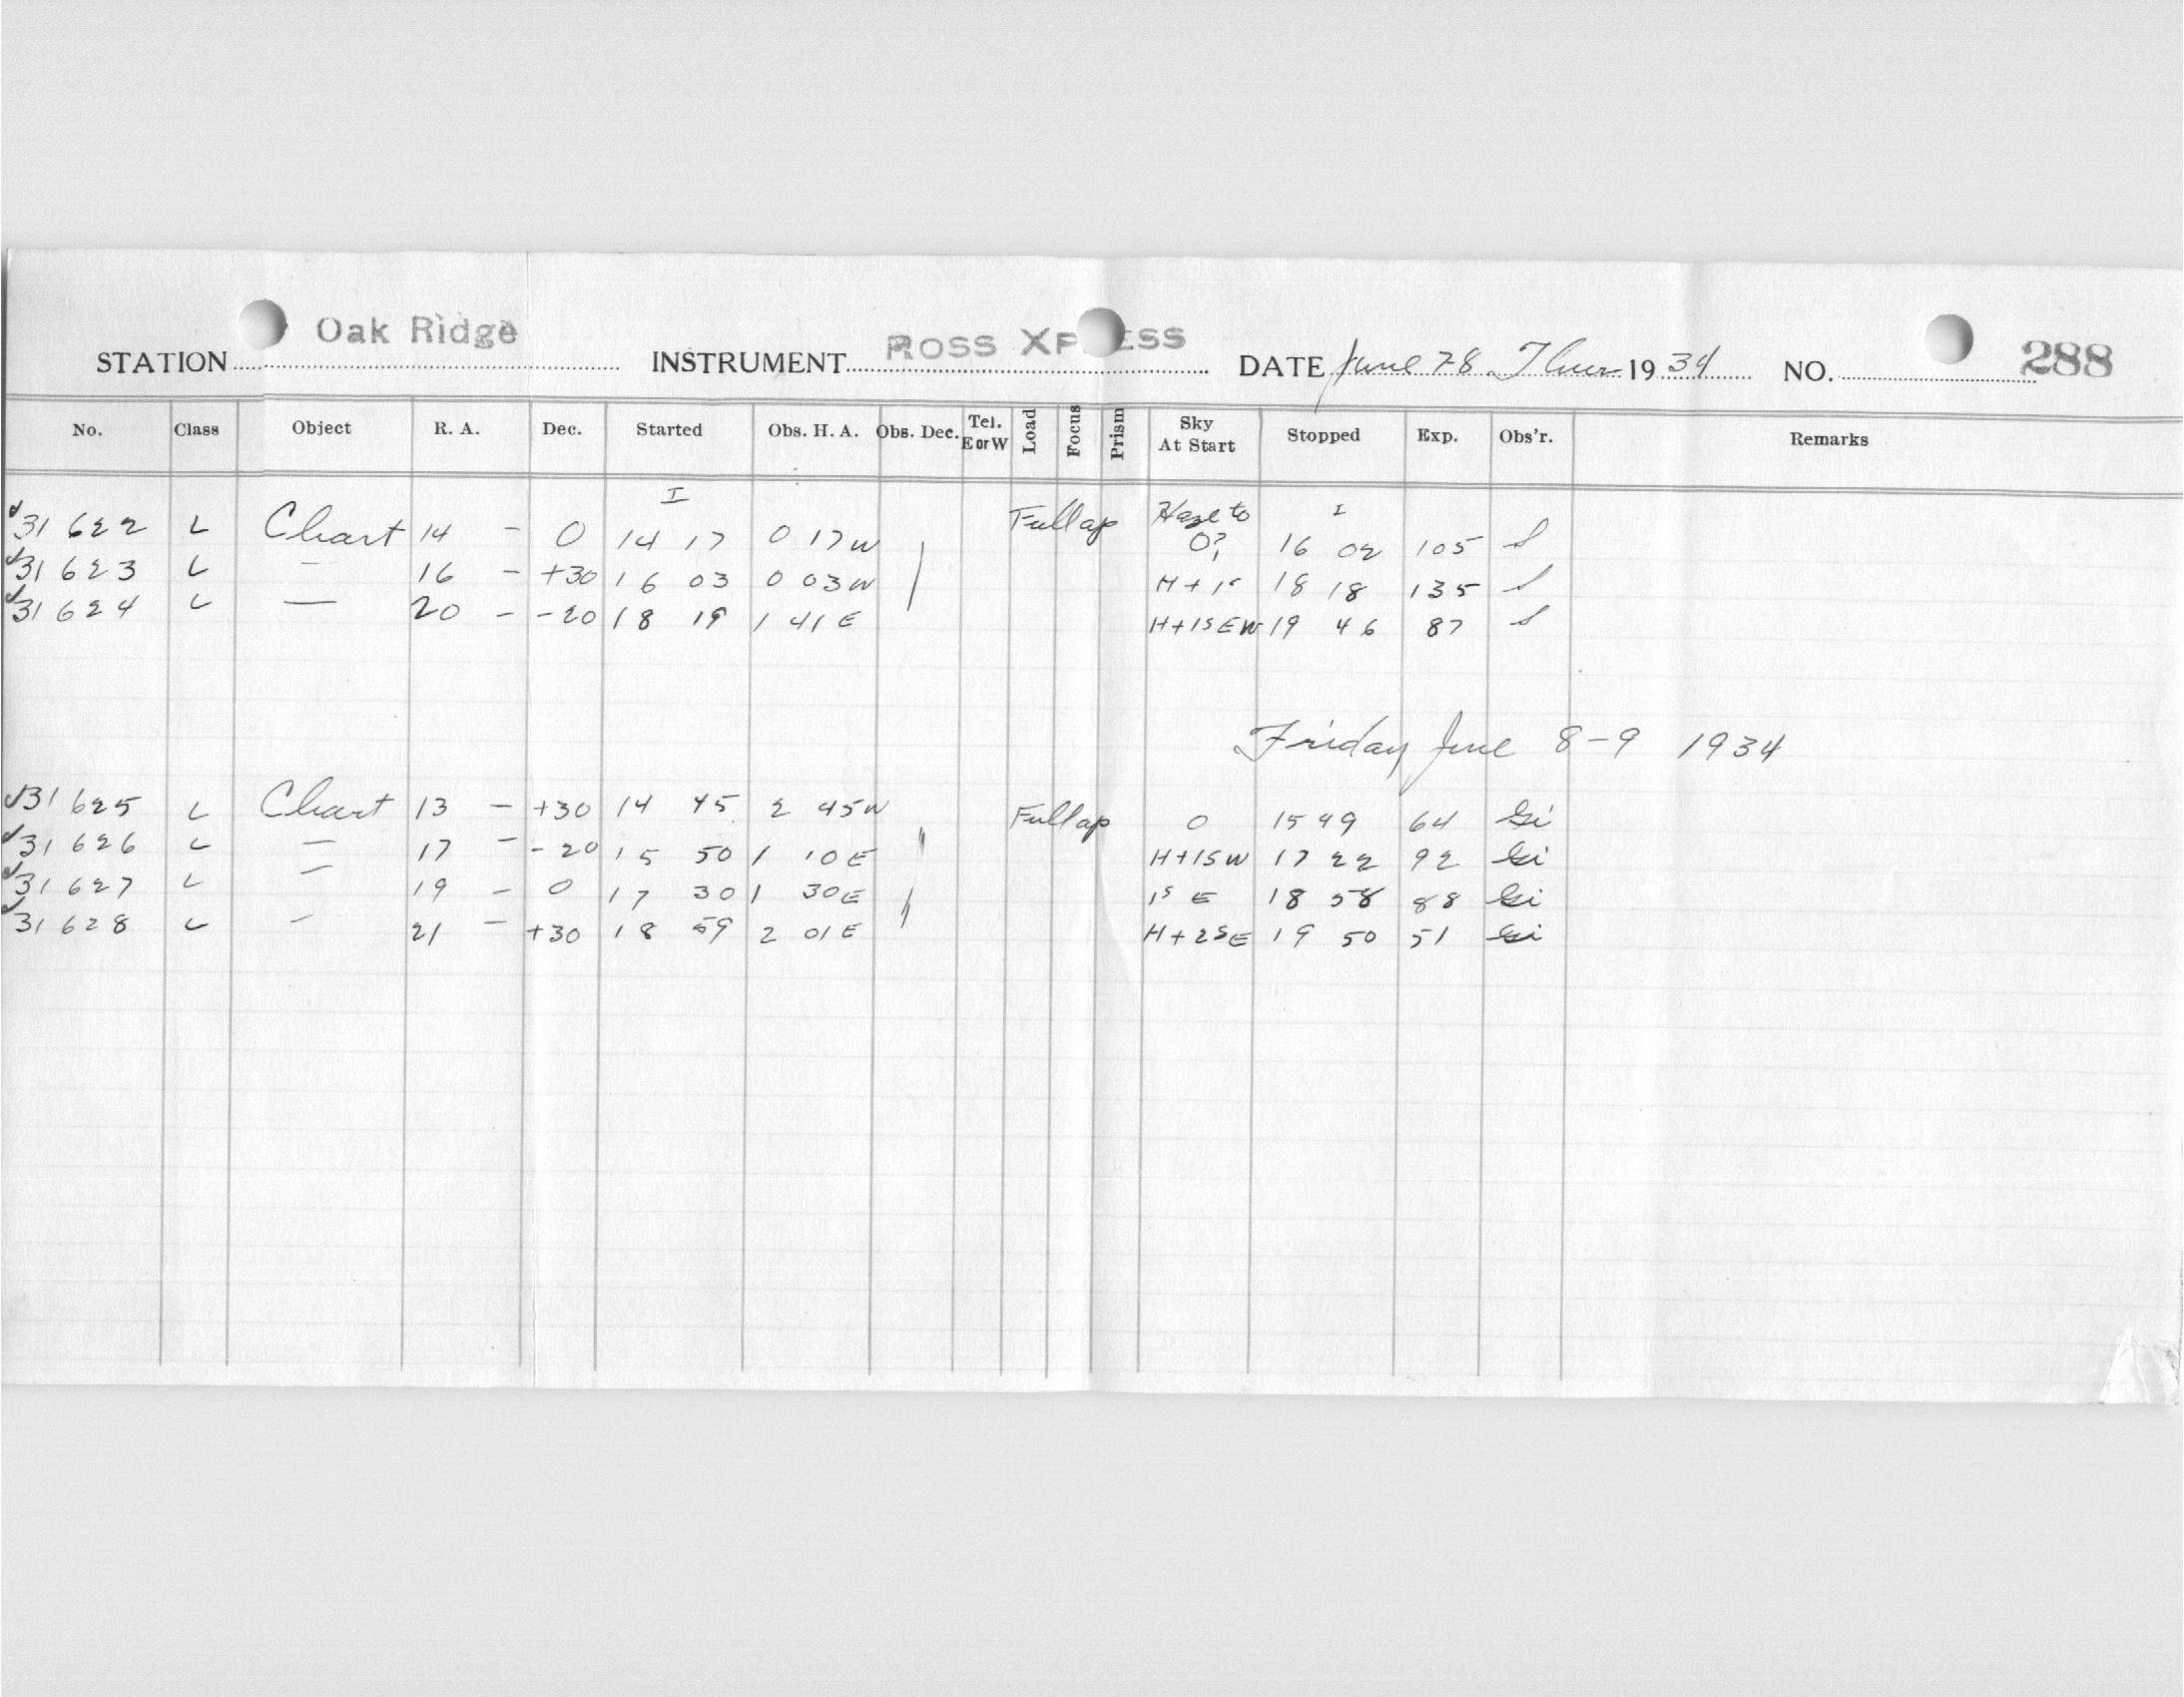 STATION Oak Ridge INSTRUMENT ROSS XP ESS DATE June 7-8 Thur 1934 NO. 288
No. Class Object R. A. Dec. Started Obs. H. A. Obs. Dec. Tel. E or W Load Focus Prism Sky At Start Stopped Exp. Obs'r. Remarks
I I
31 622 L Chart 14 - 0 14 17 0 17W Full ap Haze to 0? 16 02 105 S
31 623 L — 16 - +30 16 03 0 03W H+1S 18 18 135 S
31 624 L — 20 - -20 18 19 1 41E H+1SEW 19 46 87 S
Friday June 8-9 1934
31 625 L Chart 13 - +30 14 45 2 45W Full ap 0 15 49 64 Gi
31 626 L — 17 - -20 15 50 1 10E H+1SW 17 22 92 Gi
31 627 L — 19 - 0 17 30 1 30E 1S E 18 58 88 Gi
31 628 L — 21 - +30 18 59 2 01E H+2SE 19 50 51 Gi